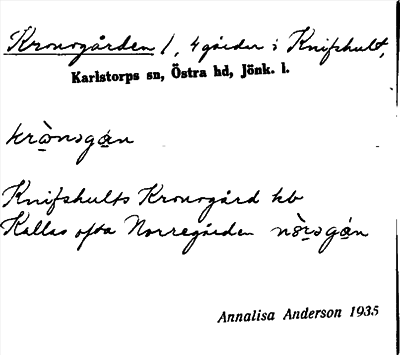 Kronogården /, 4 gårdar i Knifshult,
Karlstorps sn, Östra hd, Jönk. l.
Knifshults Kronogård kb
Kallas ofta Norregården
Annalisa Anderson 1935